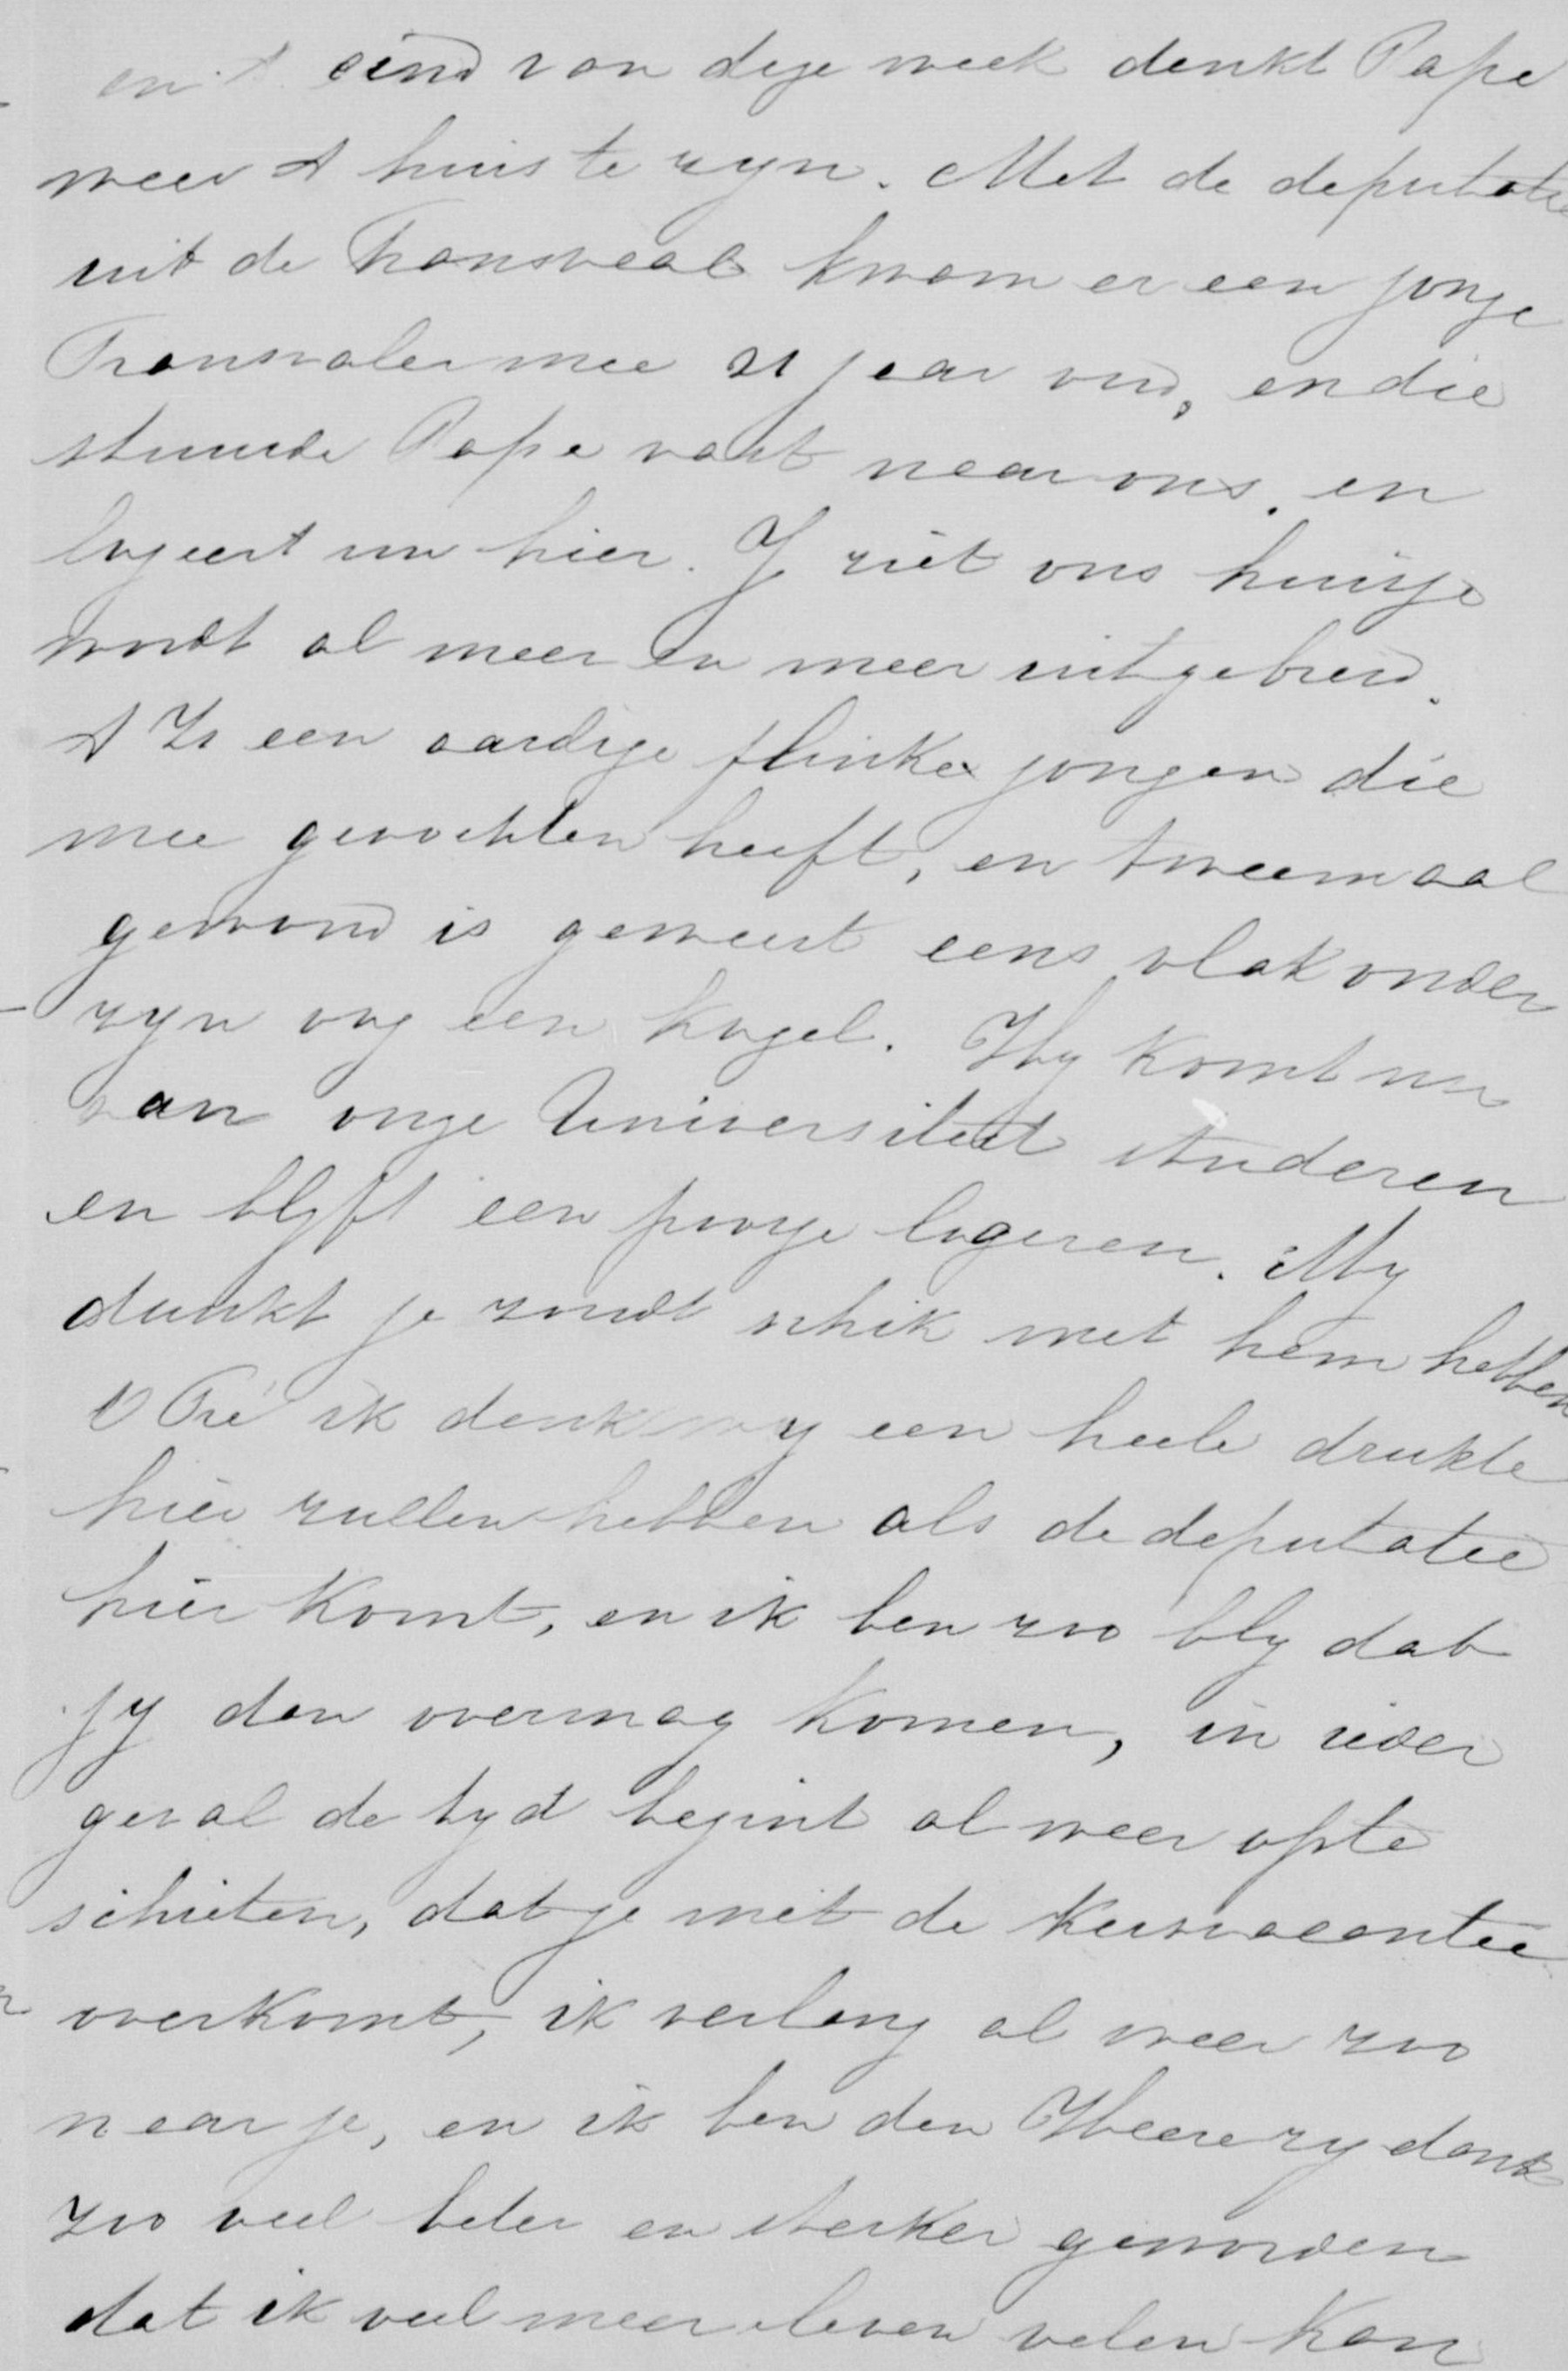 en 't eind van deze week denkt Papa
weer 't huis te zyn. Met de deputatie
uit de Transvaal kwam er een jonge
Transvaler mee 21 jaar oud, en die
stuurde Papa vast naar ons, en
logeert nu hier. Je ziet ons huisje
wordt al meer en meer uitgebreid.
't Is een aardige flinke jongen die
mee gevochten heeft, en tweemaal
gewond is geweest eens vlak onder
zyn oog een kogel. Hy komt nu
aan onze Universiteit studeren
en blyft een poosje logeren. My
dunkt je zoudt schik met hem hebben
O ik denk wy een heele drukte
hier zullen hebben als de deputatie
hier komt, en ik ben zoo bly dat
jy dan overmag komen, in ieder
geval de tyd begint al weer opte
schieten, dat je met de Kersvacantie
overkomt, ik verlang al weer zoo
naar je, en ik ben den Heere zy dank
zoo veel beter en sterker geworden
dat ik veel meer leven velen kan